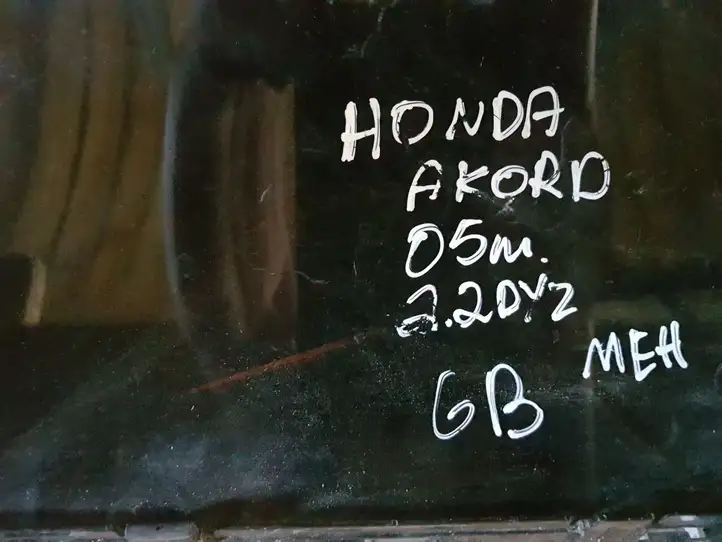 HONDA
AKORD
05m.
2.2DYZ
MEH
GB